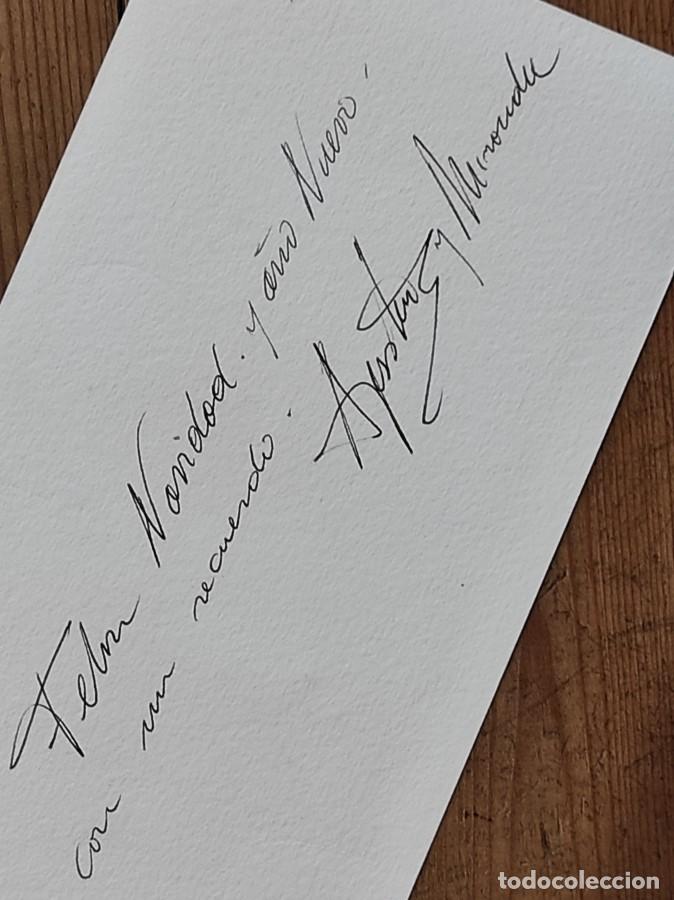 Feliz Navidad. y año Nuevo.
con un recuerdo.
Agustín y Miranda
todocoleccion